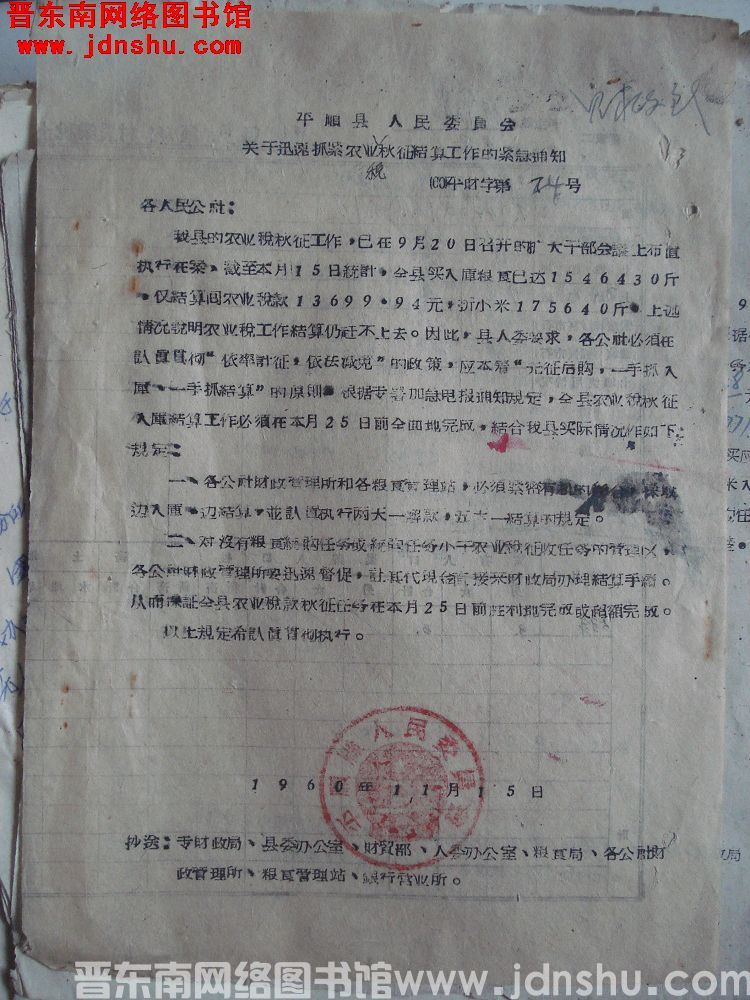 晋东南网络图书馆
www.jdnshu.com
平順县人民委員会
关于迅速抓紧农业税秋征結算工作的紧急通知
(60)平财字第74号
各人民公社：
我县的农业稅秋征工作，已在9月20日召开的扩大干部会議上布置
执行在案，截至本月15日統計，全县实入庫粮食已达1546430斤
，仅結算回农业稅款13699·94元，折小米175640斤。上述
情况説明农业稅工作結算仍赶不上去。因此，县人委要求，各公社必須在
認眞貫彻“依率計征，依法减免”的政策，应本着“先征后购，一手抓入
庫、一手抓結算”的原則。根据专署加急电报通知規定，全县农业稅秋征
入庫結算工作必須在本月25日前全面地完成，結合我县实际情况作如下
規定：
一、各公社财政管理所和各粮食管理站，必須紧密有采取
边入庫、边結算，並認眞执行两天一解款，五天一結算的規定。
二、对沒有粮食統购任务或統购任务小于农业稅征收任务的管理区，
各公社财政管理所要迅速督促，让其代現金直接来财政局办理結算手續。
从而保証全县农业稅款秋征任务在本月25日前胜利地完成或超額完成。
以上規定希認眞貫彻执行。
平順县人民委員会
1960年11月15日
抄送：专财政局、县委办公室、财贸部、人委办公室、粮食局、各公社财
政管理所、粮食管理站、銀行营业所。
晋东南网络图书馆www.jdnshu.com